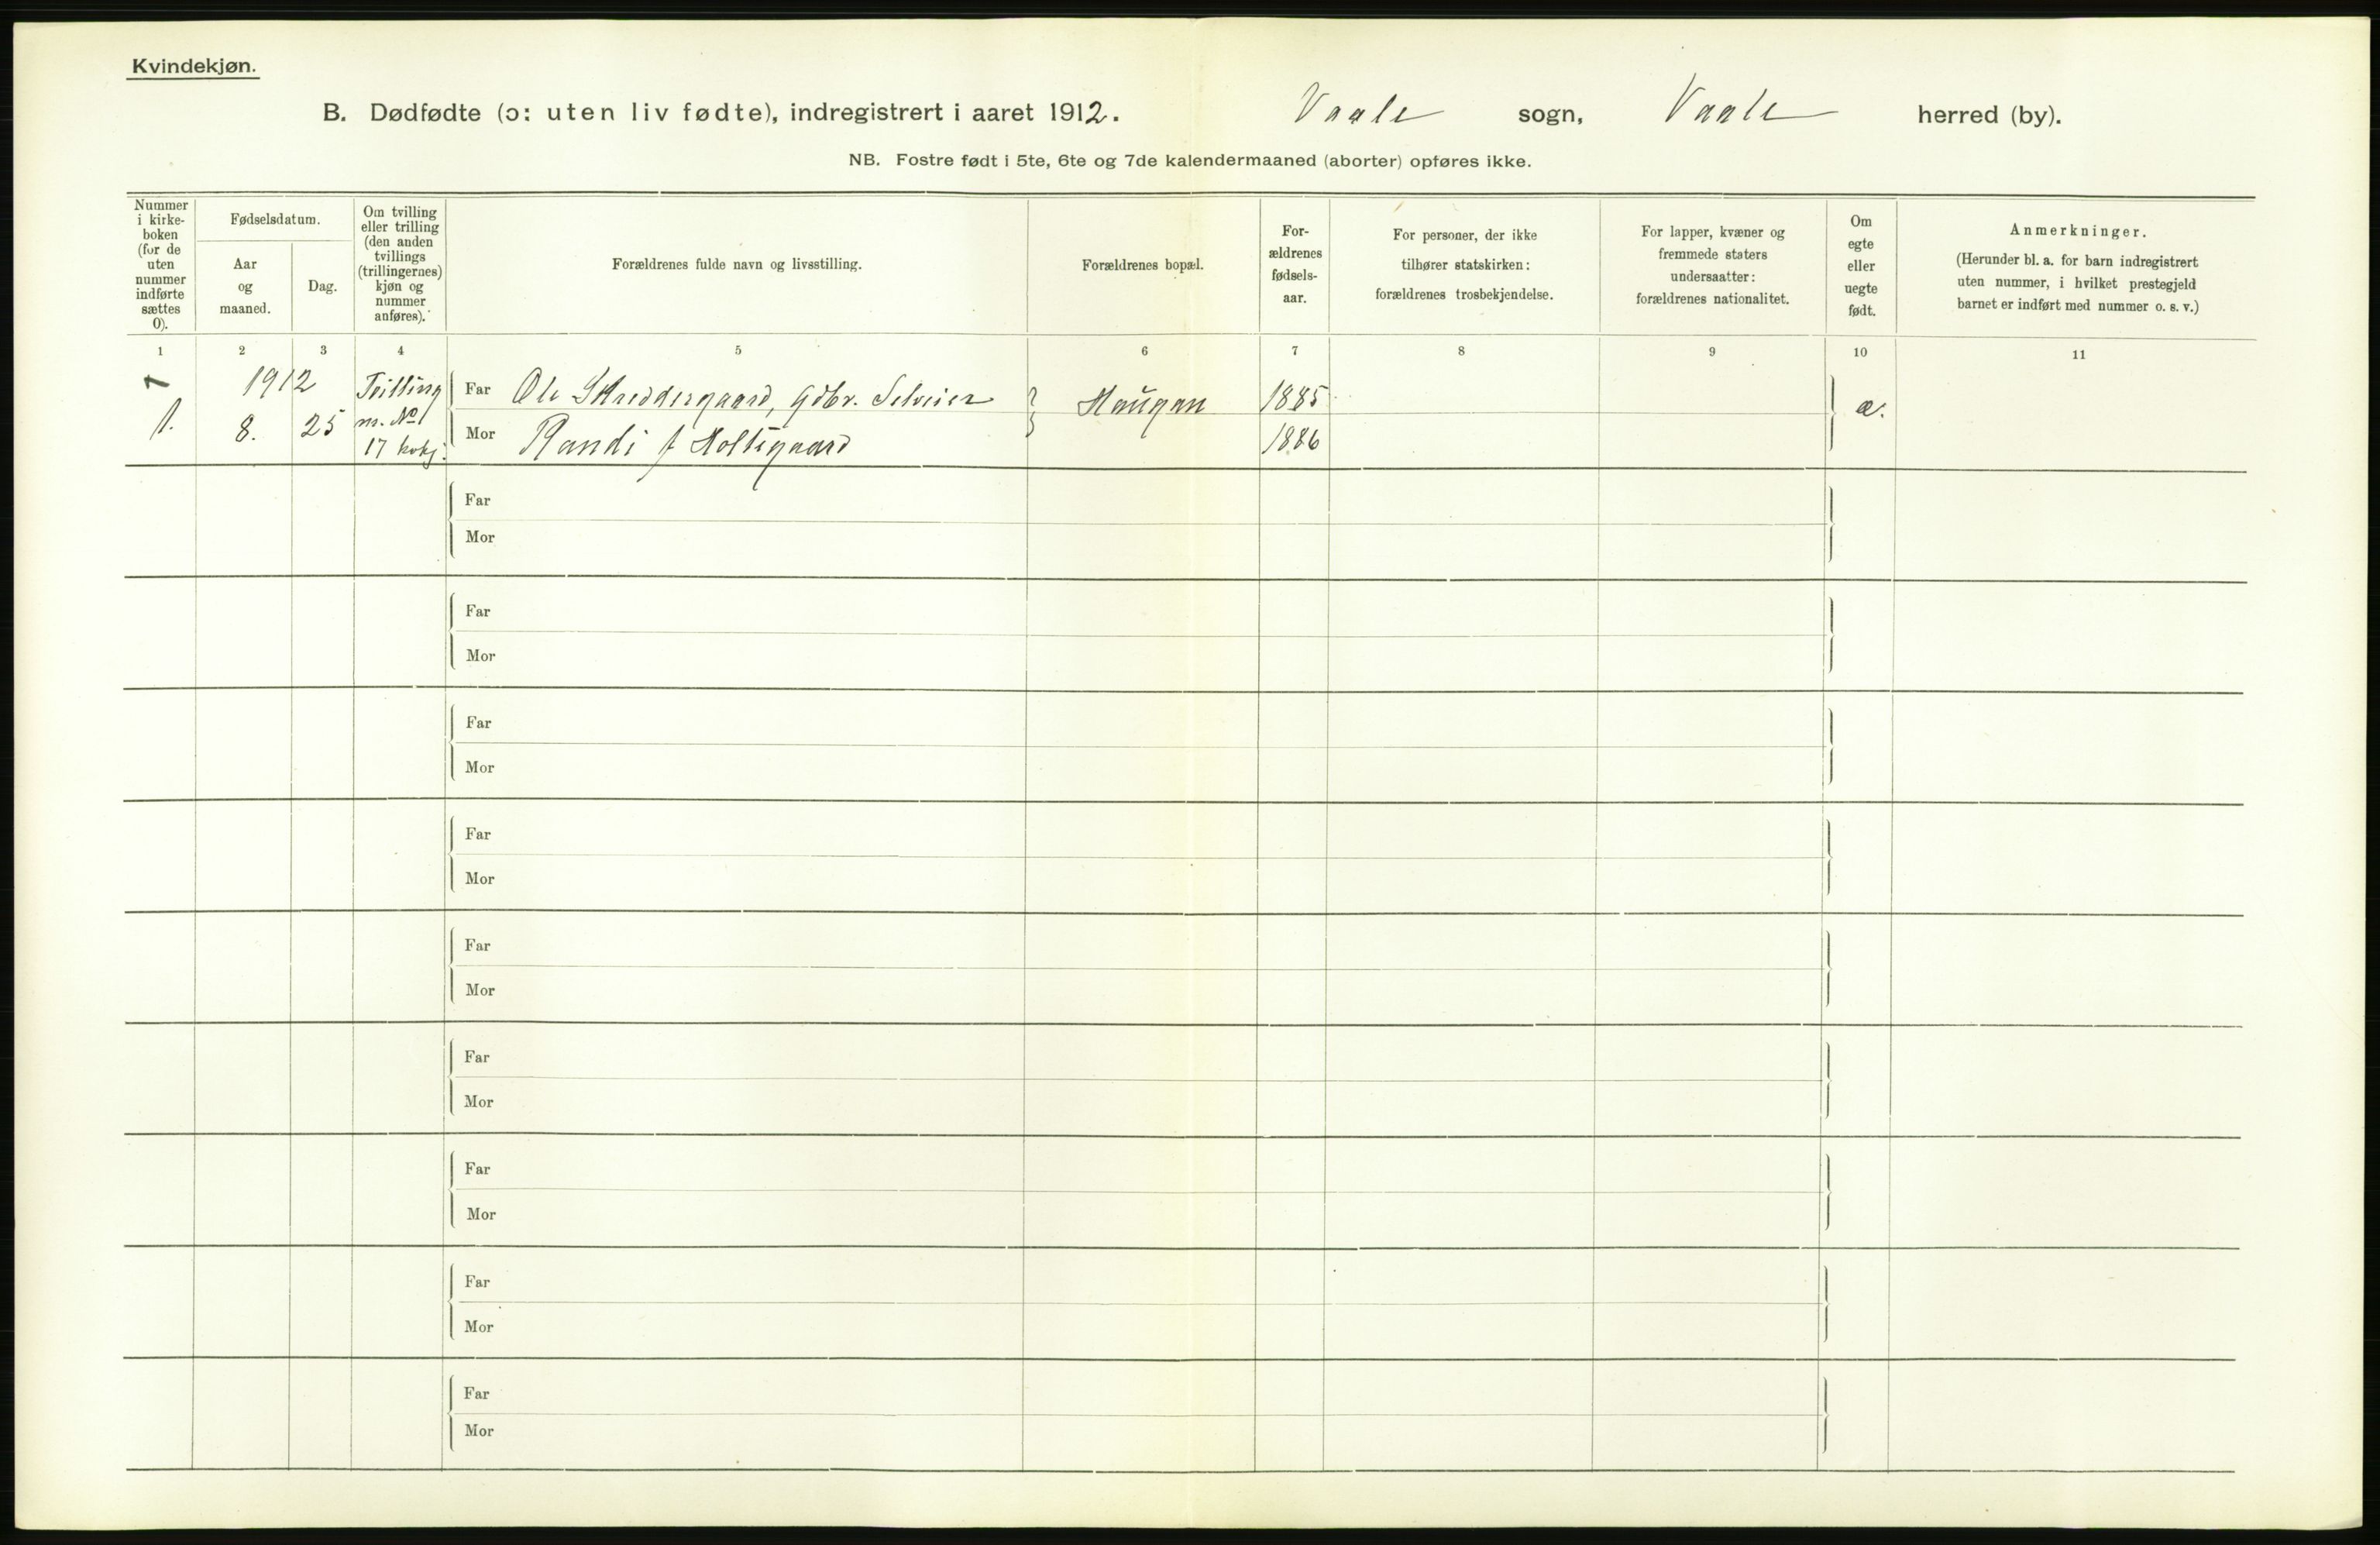 Kvindekjøn.
B. Dødfødte (ɔ: uten liv fødte), indregistrert i aaret 1912. Vaale sogn, Vaale herred (by).
NB. Fostre født i 5te, 6te og 7de kalendermaaned (aborter) opføres ikke.
Nummer
i kirke-
boken
(for de
uten
nummer
indførte
sættes
0).
Fødselsdatum.
Aar
og
maaned.
Dag.
Om tvilling
eller trilling
(den anden
tvillings
(trillingernes)
kjøn og
nummer
anføres).
Forældrenes fulde navn og livsstilling.
Forældrenes bopæl.
For-
ældrenes
fødsels-
aar.
For personer, der ikke
tilhører statskirken:
forældrenes trosbekjendelse.
For lapper, kvæner og
fremmede staters
undersaatter:
forældrenes nationalitet.
Om
egte
eller
uegte
født.
Anmerkninger.
(Herunder bl. a. for barn indregistrert
uten nummer, i hvilket prestegjeld
barnet er indført med nummer o. s. v.)
1 2 3 4 5 6 7 8 9 10 11
1912 Tvilling Far Ole Skreddergaard, gdbr. Selveier Haugan 1885
1. 8. 25 m. No Mor Randi f Holtigaard 1886 æ.
17
Far
Mor
Far
Mor
Far
Mor
Far
Mor
Far
Mor
Far
Mor
Far
Mor
Far
Mor
Far
Mor